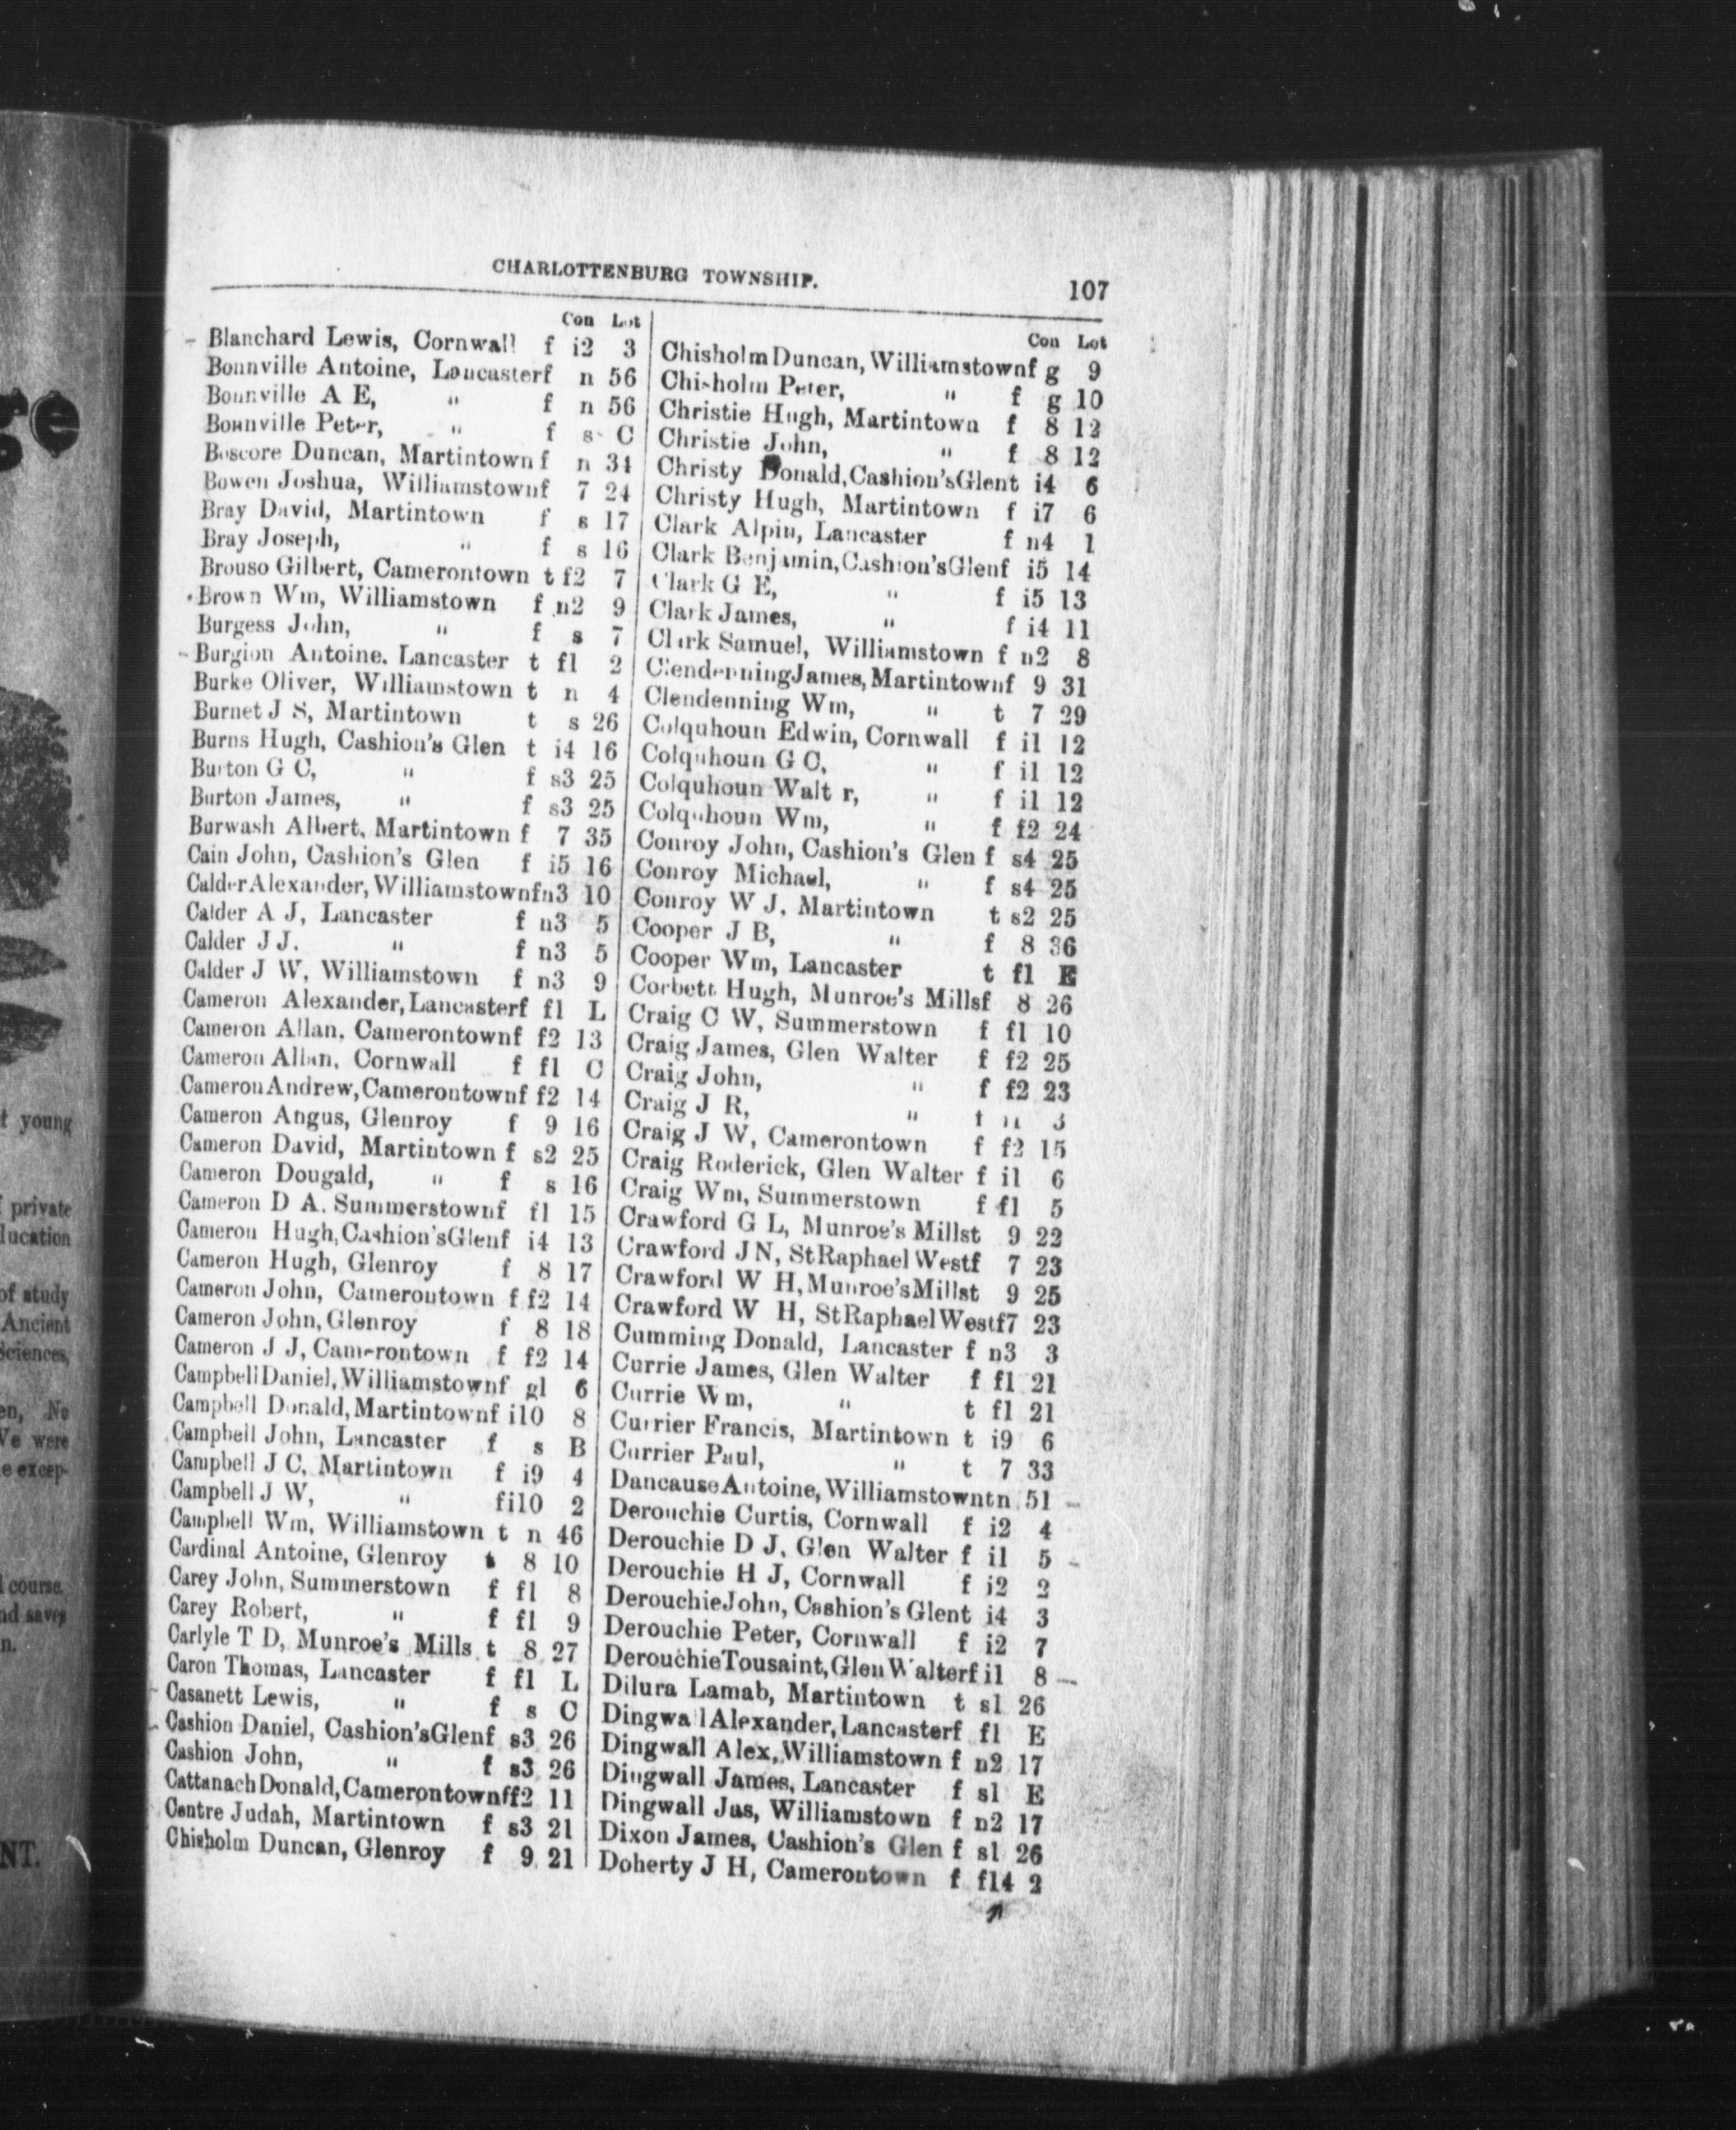 ge
t young
private
lucation
of study
Ancient
Sciences,
en, No
Ve were
e excep-
l course.
nd saves
n.
NT.
CHARLOTTENBURG TOWNSHIP.
107
Con Lot
Blanchard Lewis, Cornwall f i2 3
Bonnville Antoine, Lancasterf n 56
Bonnville A E, " f n 56
Bonnville Peter, " f s C
Boscore Duncan, Martintown f n 34
Bowen Joshua, Williamstownf 7 24
Bray David, Martintown f s 17
Bray Joseph, " f s 16
Brouso Gilbert, Camerontown t f2 7
Brown Wm, Williamstown f n2 9
Burgess John, " f s 7
Burgion Antoine. Lancaster t fl 2
Burke Oliver, Williamstown t n 4
Burnet J S, Martintown t s 26
Burns Hugh, Cashion's Glen t i4 16
Burton G C, " f s3 25
Burton James, " f s3 25
Burwash Albert, Martintown f 7 35
Cain John, Cashion's Glen f i5 16
Calder Alexander, Williamstownfn3 10
Calder A J, Lancaster f n3 5
Calder J J. " f n3 5
Calder J W, Williamstown f n3 9
Cameron Alexander, Lancasterf fl L
Cameron Allan. Camerontownf f2 13
Cameron Allan. Cornwall f fl C
Cameron Andrew, Camerontownf f2 14
Cameron Angus, Glenroy f 9 16
Cameron David, Martintown f s2 25
Cameron Dougald, " f s 16
Cameron D A. Summerstownf fl 15
Cameron Hugh, Cashion'sGlenf i4 13
Cameron Hugh, Glenroy f 8 17
Cameron John, Camerontown f f2 14
Cameron John, Glenroy f 8 18
Cameron J J, Camerontown f f2 14
Campbell Daniel, Williamstownf gl 6
Campbell Donald, Martintownf i10 8
Campbell John, Lancaster f s B
Campbell J C, Martintown f i9 4
Campbell J W, " fi10 2
Campbell Wm, Williamstown t n 46
Cardinal Antoine, Glenroy t 8 10
Carey John, Summerstown f fl 8
Carey Robert, " f fl 9
Carlyle T D, Munroe's Mills t 8 27
Caron Thomas, Lancaster f fl L
Casanett Lewis, " f s C
Cashion Daniel, Cashion'sGlenf s3 26
Cashion John, " f s3 26
Cattanach Donald, Camerontownff2 11
Centre Judah, Martintown f s3 21
Chisholm Duncan, Glenroy f 9 21
Con Lot
Chisholm Duncan, Williamstownf g 9
Chisholm Peter, " f g 10
Christie Hugh, Martintown f 8 12
Christie John, " f 8 12
Christy Donald, Cashion'sGlent i4 6
Christy Hugh, Martintown f i7 6
Clark Alpin, Lancaster f n4 1
Clark Benjamin, Cashion'sGlenf i5 14
Clark G E, " f i5 13
Clark James, " f i4 11
Clark Samuel, Williamstown f n2 8
Clendenning James, Martintownf 9 31
Clendenning Wm, " t 7 29
Colquhoun Edwin, Cornwall f il 12
Colquhoun G C, " f il 12
Colquhoun Walt r, " f il 12
Colquhoun Wm, " f f2 24
Conroy John, Cashion's Glen f s4 25
Conroy Michael, " f s4 25
Conroy W J. Martintown t s2 25
Cooper J B, " f 8 36
Cooper Wm, Lancaster t fl E
Corbett Hugh, Munroe's Millsf 8 26
Craig C W, Summerstown f fl 10
Craig James, Glen Walter f f2 25
Craig John, " f f2 23
Craig J R, " 3
Craig J W, Camerontown f f2 15
Craig Roderick, Glen Walter f il 6
Craig Wm, Summerstown f fl 5
Crawford G L, Munroe's Millst 9 22
Crawford J N, St Raphael Westf 7 23
Crawford W H, Munroe'sMillst 9 25
Crawford W H, StRaphaelWestf7 23
Cumming Donald, Lancaster f n3 3
Currie James, Glen Walter f fl 21
Currie Wm, " t fl 21
Currier Francis, Martintown t i9 6
Currier Paul, " t 7 33
Dancause Antoine, Williamstowntn 51
Derouchie Curtis, Cornwall f i2 4
Derouchie D J, Glen Walter f il 5
Derouchie H J, Cornwall f i2 2
Derouchie John, Cashion's Glent i4 3
Derouchie Peter, Cornwall f i2 7
Derouchie Tousaint, Glen Walterf il 8
Dilura Lamab, Martintown t sl 26
Dingwa l Alexander, Lancasterf fl E
Dingwall Alex, Williamstown f n2 17
Dingwall James, Lancaster f sl E
Dingwall Jas, Williamstown f n2 17
Dixon James, Cashion's Glen f sl 26
Doherty J H, Camerontown f f14 2